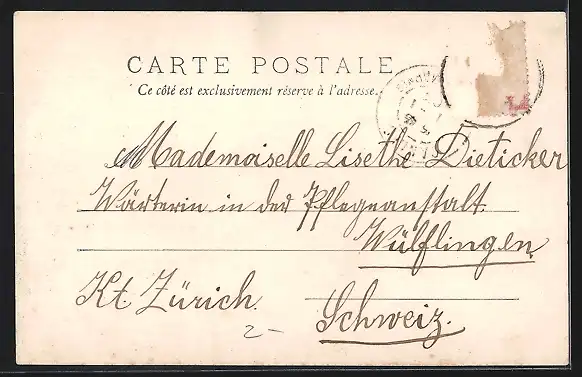 CARTE POSTALE
Ce côté est exclusivement réservé à l'adresse.
Mademoiselle Lisethe Dieticker
Wärterin in der Pflegeanstalt
Wülflingen
Kt. Zürich.
Schweiz.
2-